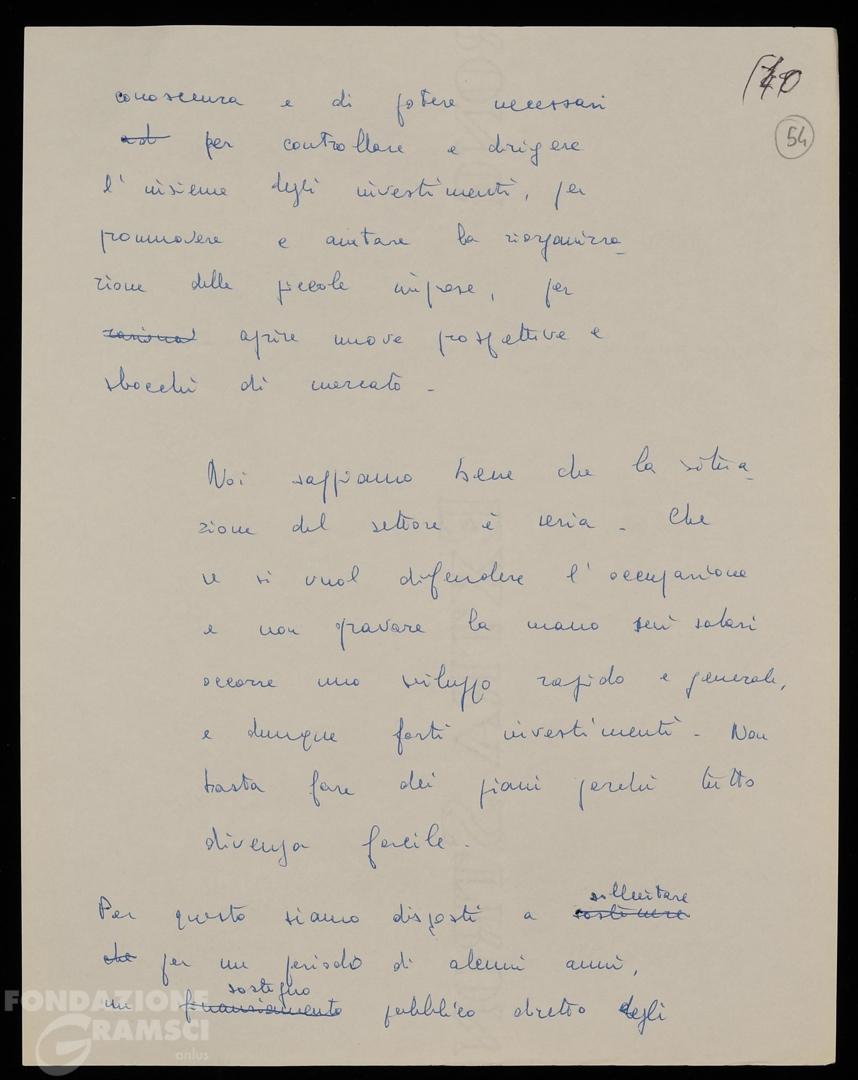 40
54
conoscenza e di potere necessari
ad per controllare e dirigere
l'insieme degli investimenti, per
promuovere e aiutare la riorganizza-
zione delle piccole imprese, per
razional aprire nuove prospettive e
sbocchi di mercato -
Noi sappiamo bene che la situa-
zione del settore è seria - Che
se si vuol difendere l'occupazione
e non gravare la mano sui salari
occorre uno sviluppo rapido e generale,
e dunque forti investimenti - Non
basta fare dei piani perché tutto
divenga facile.
sollecitare
Per questo siamo disposti a sostenere
che per un periodo di alcuni anni,
sostegno
un finanziamento pubblico diretto degli
FONDAZIONE
GRAMSCI
onlus